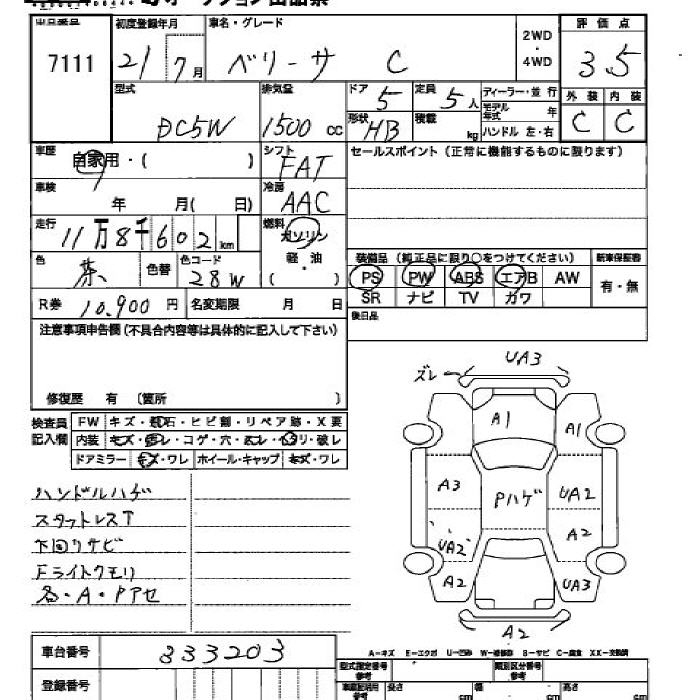 出品番号 初度登録年月 車名・グレード 2WD・4WD 評価点
7111 21/7月 ベリーサ C 3.5
型式 DC5W 排気量 1500 cc ドア 5 定員 5人 ディーラー・並行 外装 内装
形状 HB 積載 kg モデル年式 年 C C
ハンドル 左・右
車歴 自家用・( ) シフト FAT セールスポイント(正常に機能するものに限ります)
車検 年 月( 日) 冷房 AAC
走行 11万8千602km 燃料 ガソリン
軽・油
( )
色 茶 色替 色コード 28W
装備品 (純正品に限り○をつけてください) 新車保証書
PS PW ABS エアB AW 有・無
SR ナビ TV カワ
R券 10,900円 名変期限 月 日 後日品
注意事項申告欄(不具合内容等は具体的に記入して下さい)
修復歴 有 〔箇所 〕
検査員記入欄
FW キズ・飛石・ヒビ割・リペア跡・X要
内装 キズ・・コゲ・穴・・リ・破レ
ドアミラー キズ・ワレ ホイール・キャップ キズ・ワレ
ハンドルハゲ
スタットレスT
下回りサビ
Fライトクモリ
各・A・Pアセ
ズレ UA3
A1 A1
A3 Pハゲ UA2
UA2 A2
A2 UA3
A2
A-キズ E-エクボ U-凹み W-補修跡 S-サビ C-腐食 XX-交換済
車台番号 333203
登録番号
型式指定番号 参考 類別区分番号 参考
長さ cm 幅 cm 高 cm